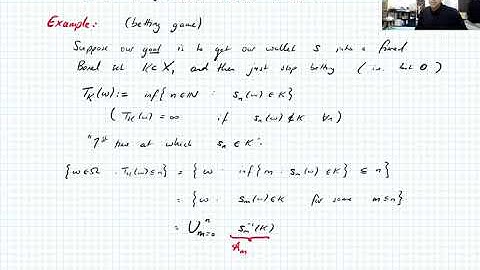 Example: (betting game)
Suppose our goal is to get our wallet S into a fixed
Borel set K ⊂ X, and then just stop betting (i.e. bet 0)
T_K(ω) := inf{n ∈ ℕ : S_n(ω) ∈ K}
(T_K(ω) = ∞ if S_n(ω) ∉ K ∀n)
"1st time at which S_n ∈ K".
{ω ∈ Ω : T_K(ω) ≤ n} = {ω : inf{m : S_m(ω) ∈ K} ≤ n}
= {ω : S_m(ω) ∈ K for some m ≤ n}
= ⋃_{m=0}^n S_m^{-1}(K)
A_m